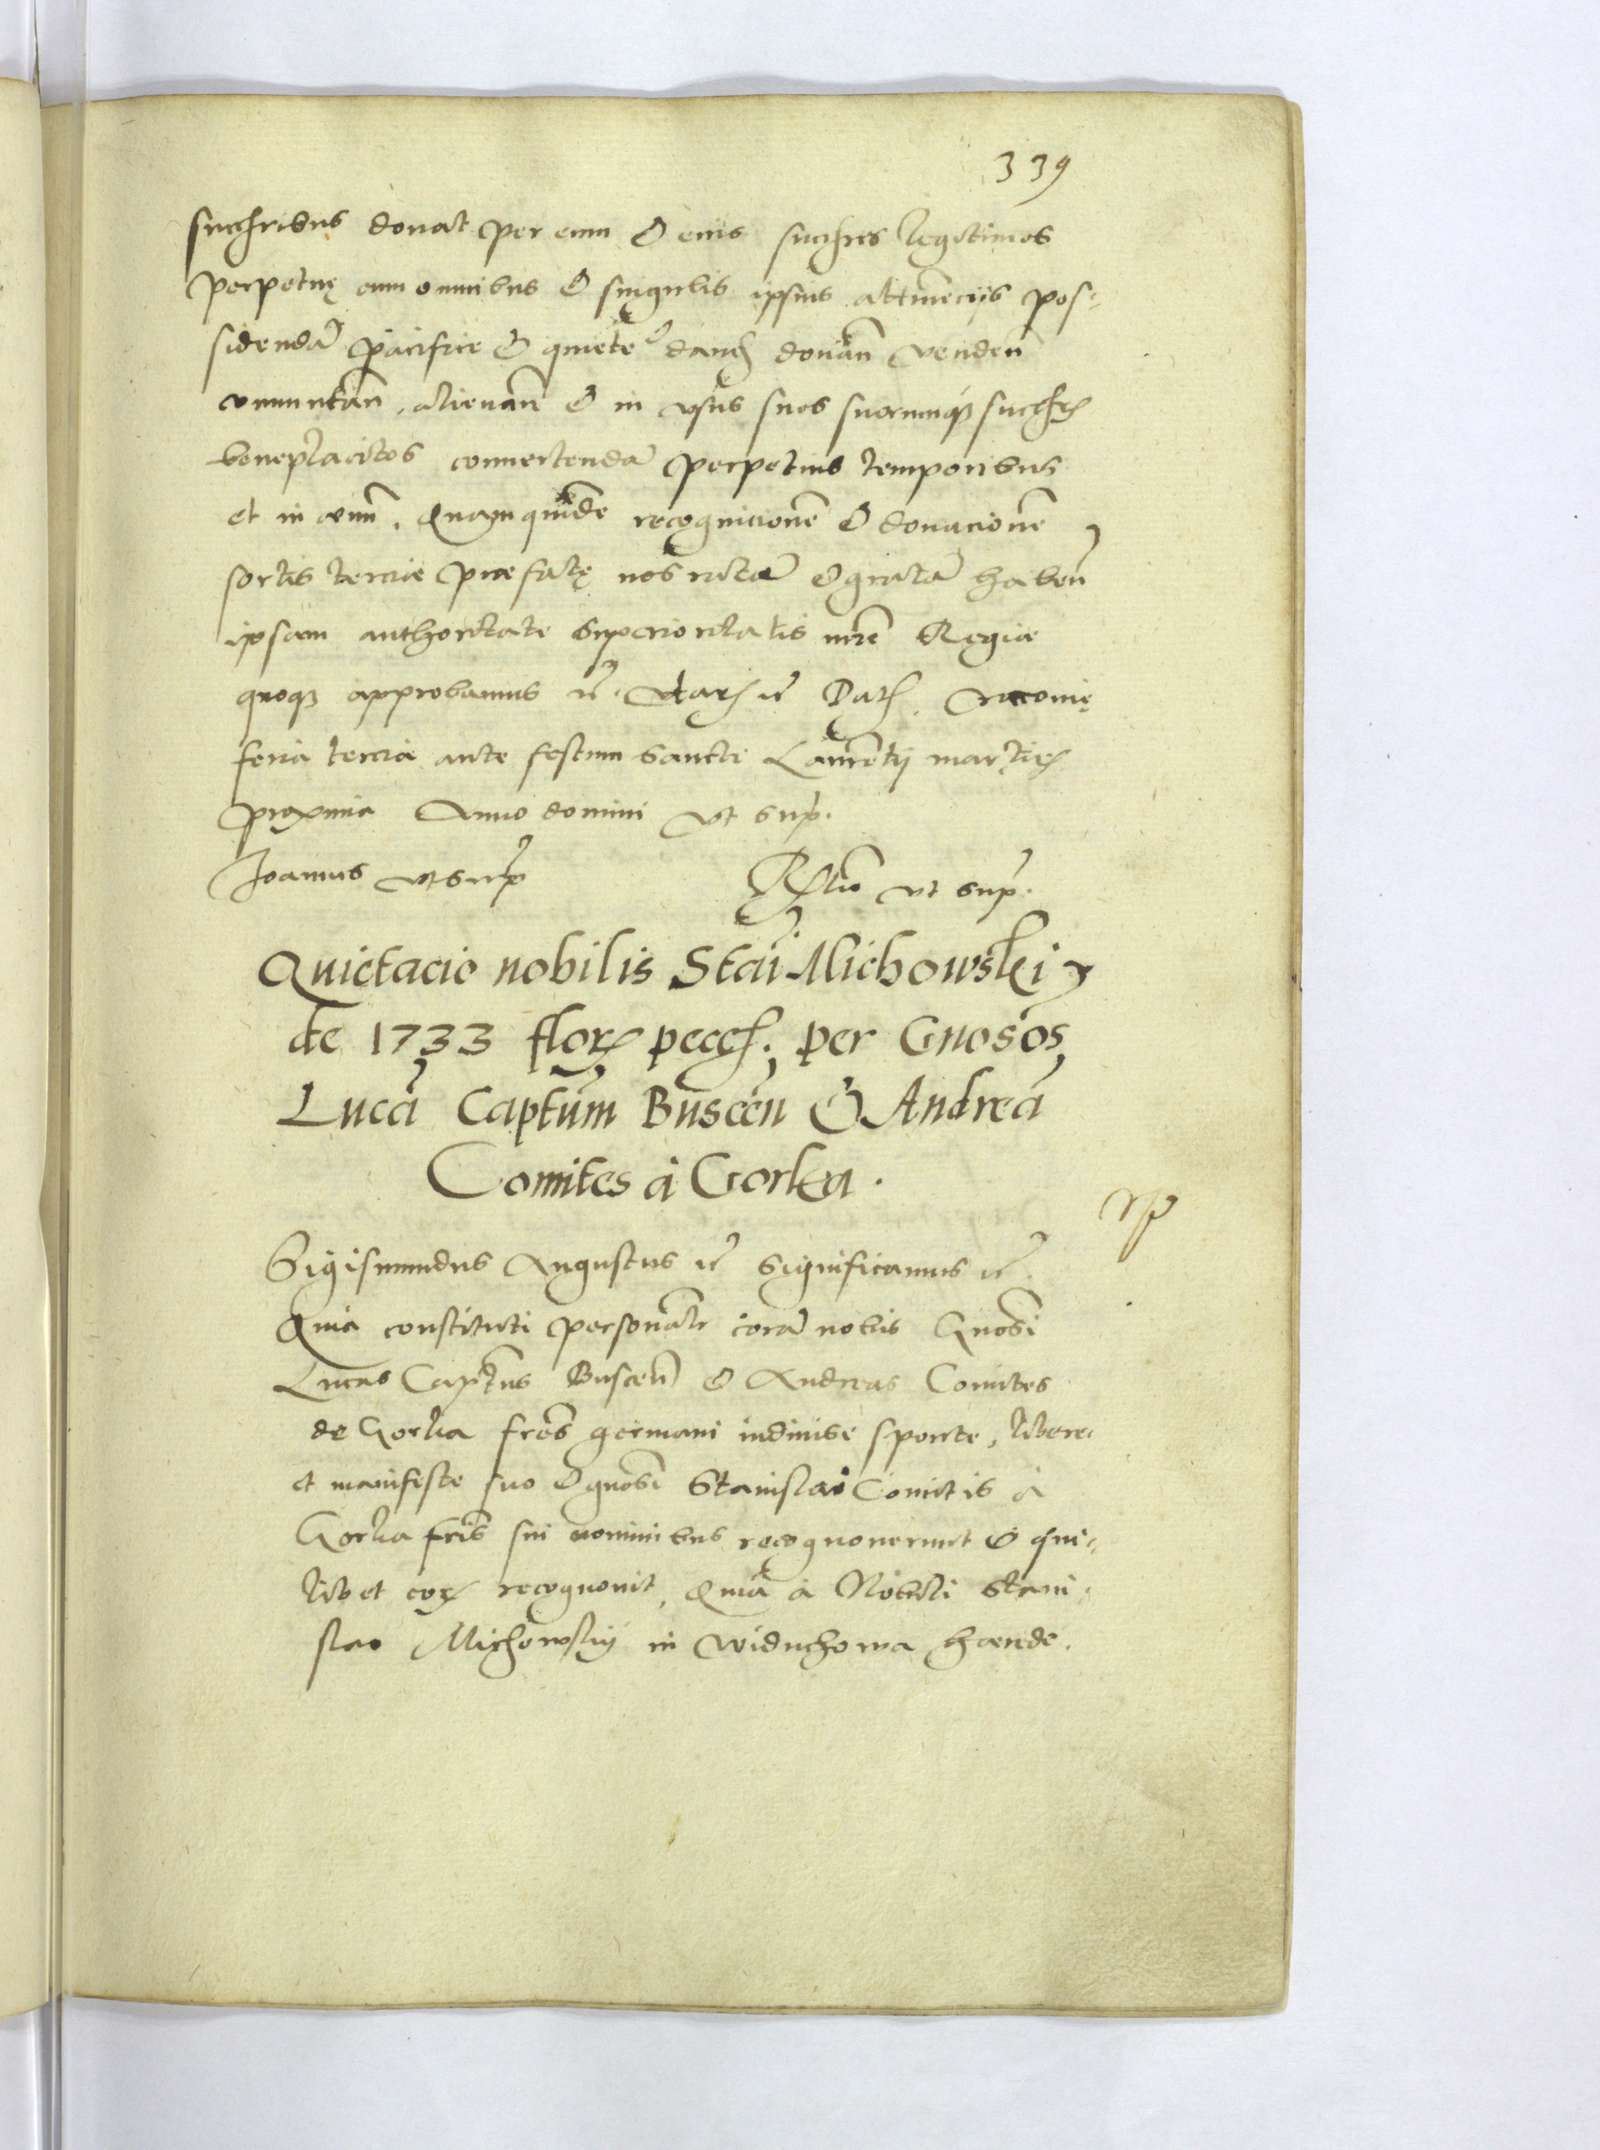 339
succribus donat per eum & eius succres legitimos
perpetuę cum omnibus & singulis ipsius attinẽcijs pos-
sidendã pacifice & quietẽ dand donan̄ venden̄
commutan̄, alienan̄ & in vsus suos suorumq3 succr
beneplacitos conuertendã perpetuis temporibus
et in aeuū. Quamquidẽ recognicionẽ & donacionẽ
sortis tercie praefatę nos ratã & gratã haben̄
ipsam authoritate Superioritatis nr̃e Regiae
quoq3 approbamus &c̃. Dat Cracouię
feria tercia ante festum Sancti Laurẽtij martir
proxima Anno domini vt sup.
Joannus vt sup̃
Rltio vt sup̃.
Quietacio nobilis Stai Michowski
de 1733 flor pecc. per Gnosos
Lucã Captũm Buscen & Andreã
Comites à Gorka.
Sigismundus Augustus &c̃ Significamus &c̃
Quia constituti personalr corã nobis Gnosi
Lucas Captus Buscen̄ & Andreas Comites
de Gorka fres germani indiuise sponte, libere
et manifeste suo & gnosi Stanislai Comitis à
Gorka fris sui nominibus recognouerunt & qui-
libet eor recognouit, Quia à Nobili Stani-
slao Michowskij in Widuchowa haerede.